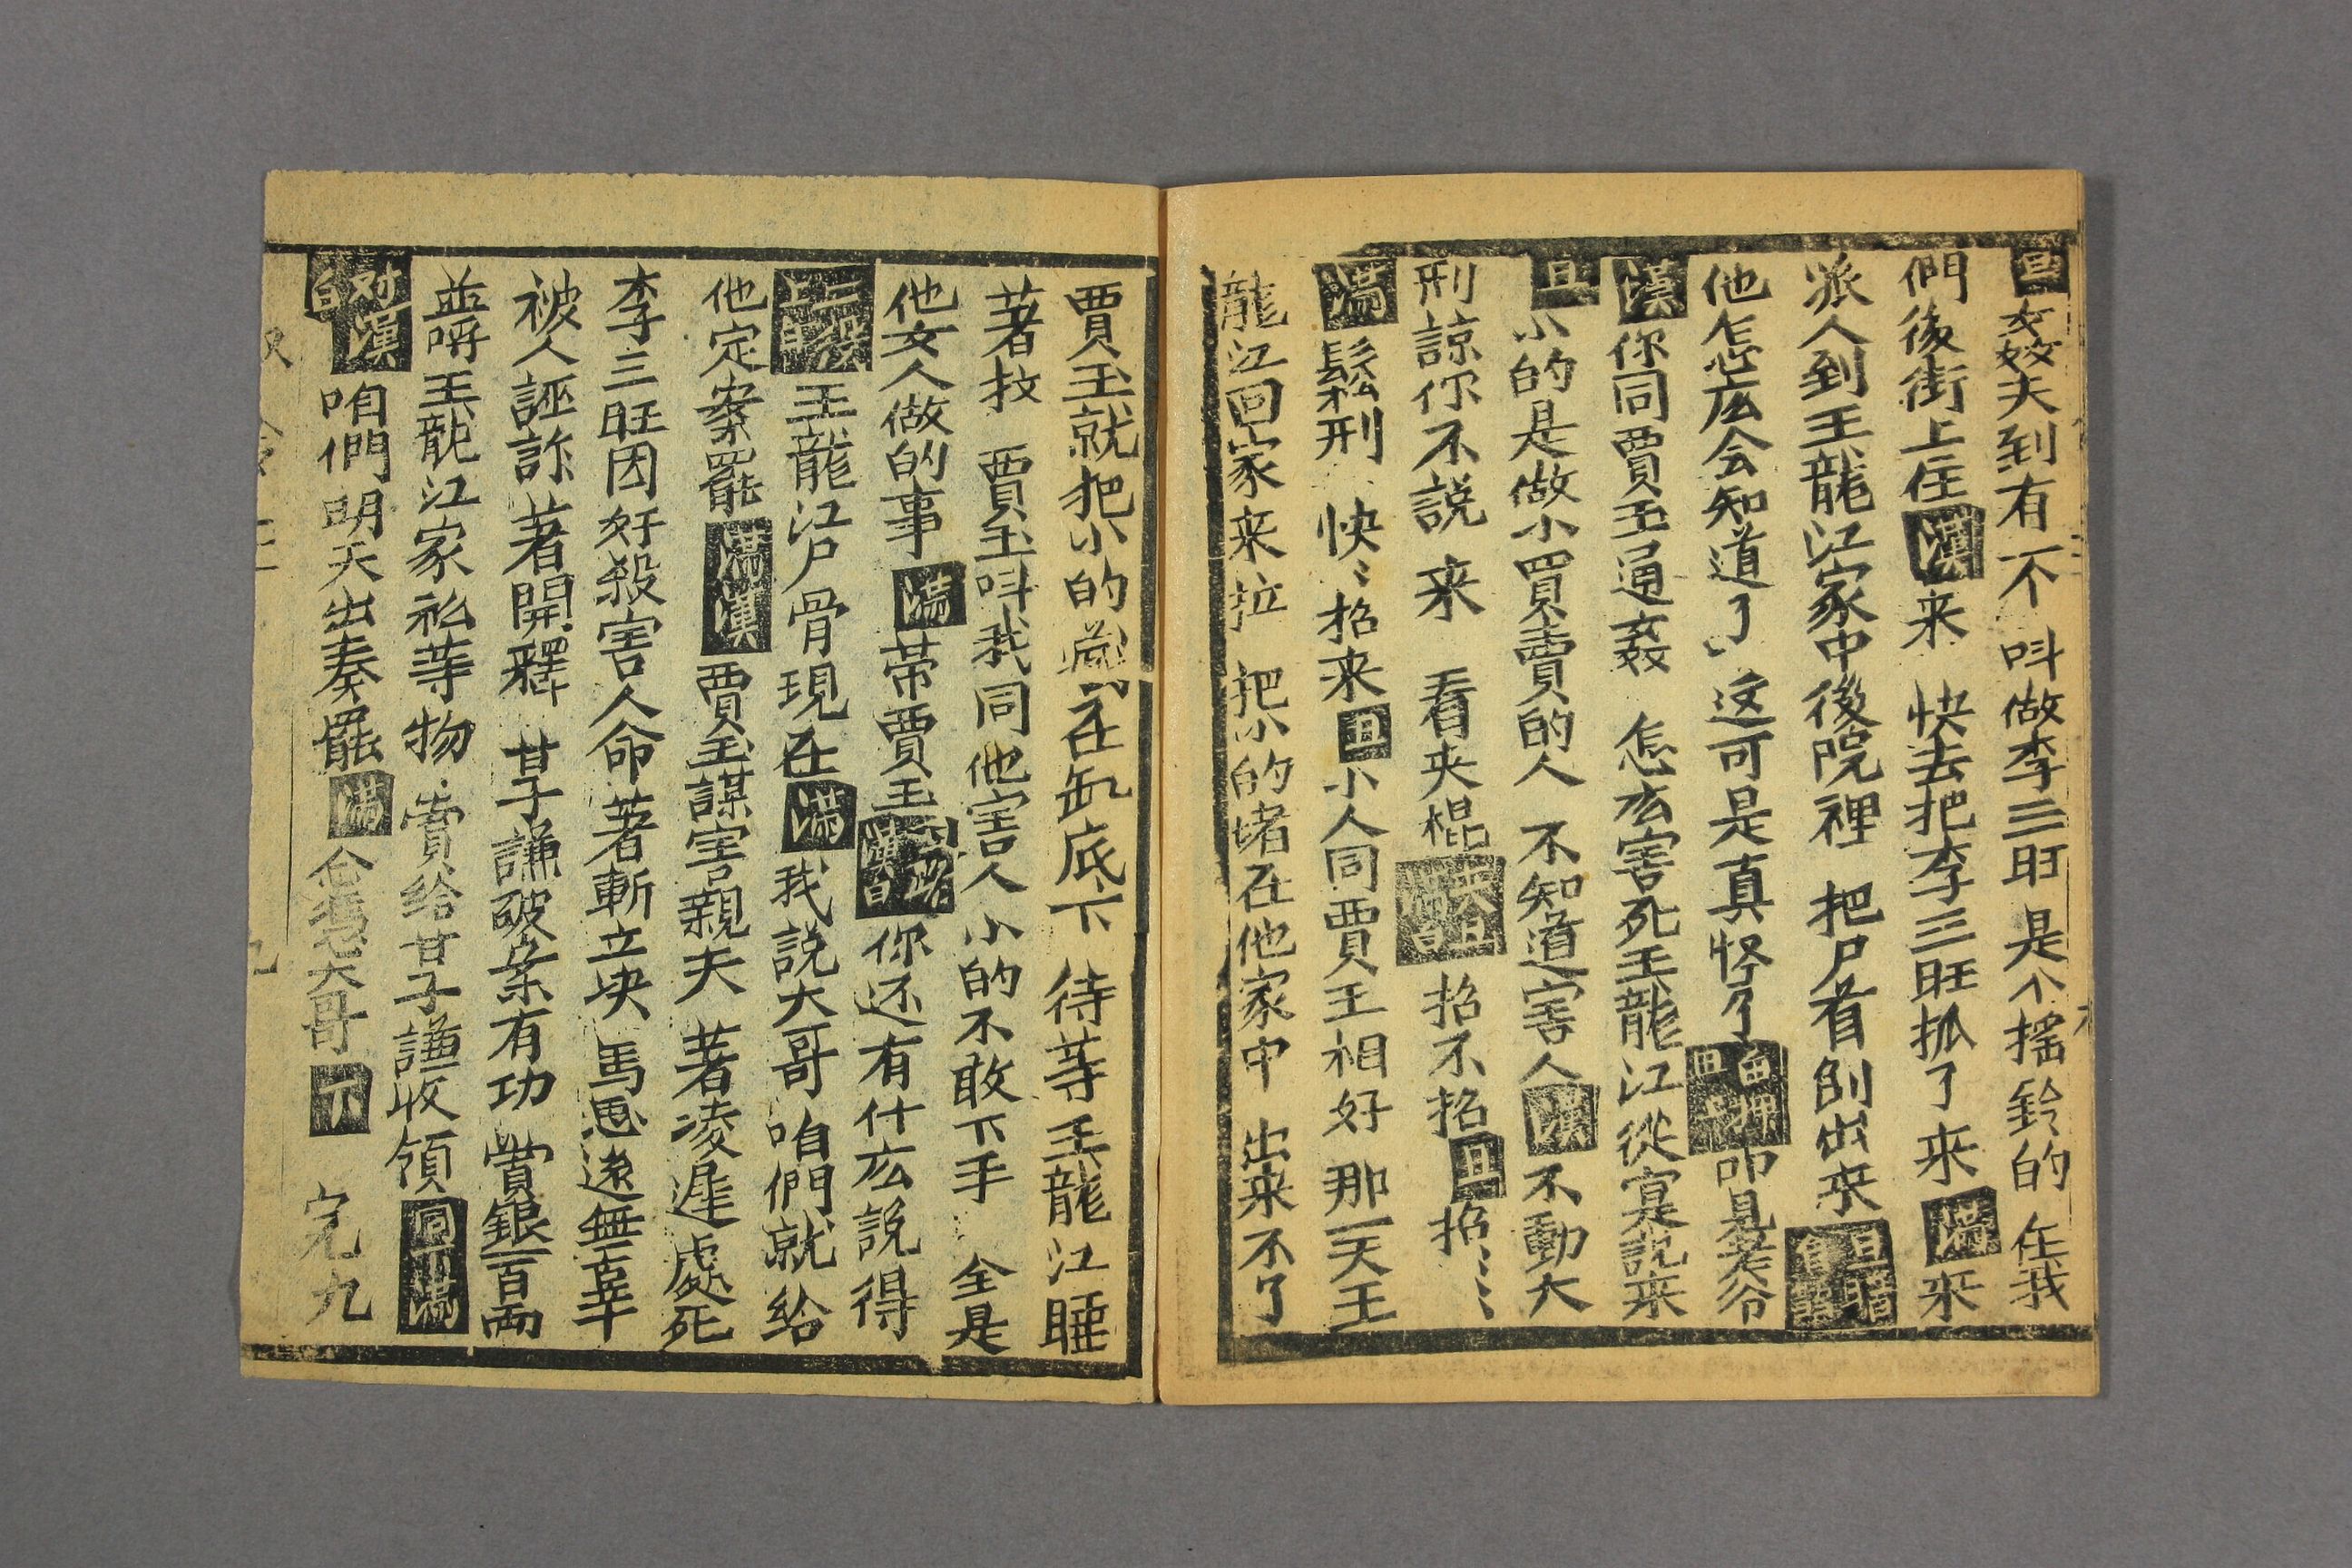 旦姦夫到有不叫做李三旺是个搖鈴的在我
們後街上住漢来快去把李三旺抓了来滿来
派人到王龍江家中後院裡把尸首刨出来
他怎庅会知道了这可是真怪了叩見老爷
漢你同賈玉通姦怎庅害死王龍江從寔説来
旦小的是做小買賣的人不知道害人漢不動大
刑諒你不説来看夾棍招不招丑招〻〻
滿鬆刑快〻招来丑小人同賈王相好那一天王
龍江回家来拉把小的堵在他家中出来不了
賈玉就把小的藏在缸底下待等王龍江睡
著㧊賈玉叫我同他害人小的不敢下手全是
他女人做的事滿帶賈玉你还有什庅説得
王龍江尸骨現在滿我説大哥咱們就給
他定案罷滿漢賈玉謀害親夫著凌遲處死
李三旺因奸殺害人命著斬立块馬思遠無辜
被人誣詐著開釋甘子謙破案有功賞銀一百兩
並將王龍江家私等物賞給甘子謙收領同滿
对漢白咱們明天出奏罷滿仝憑大哥下完九